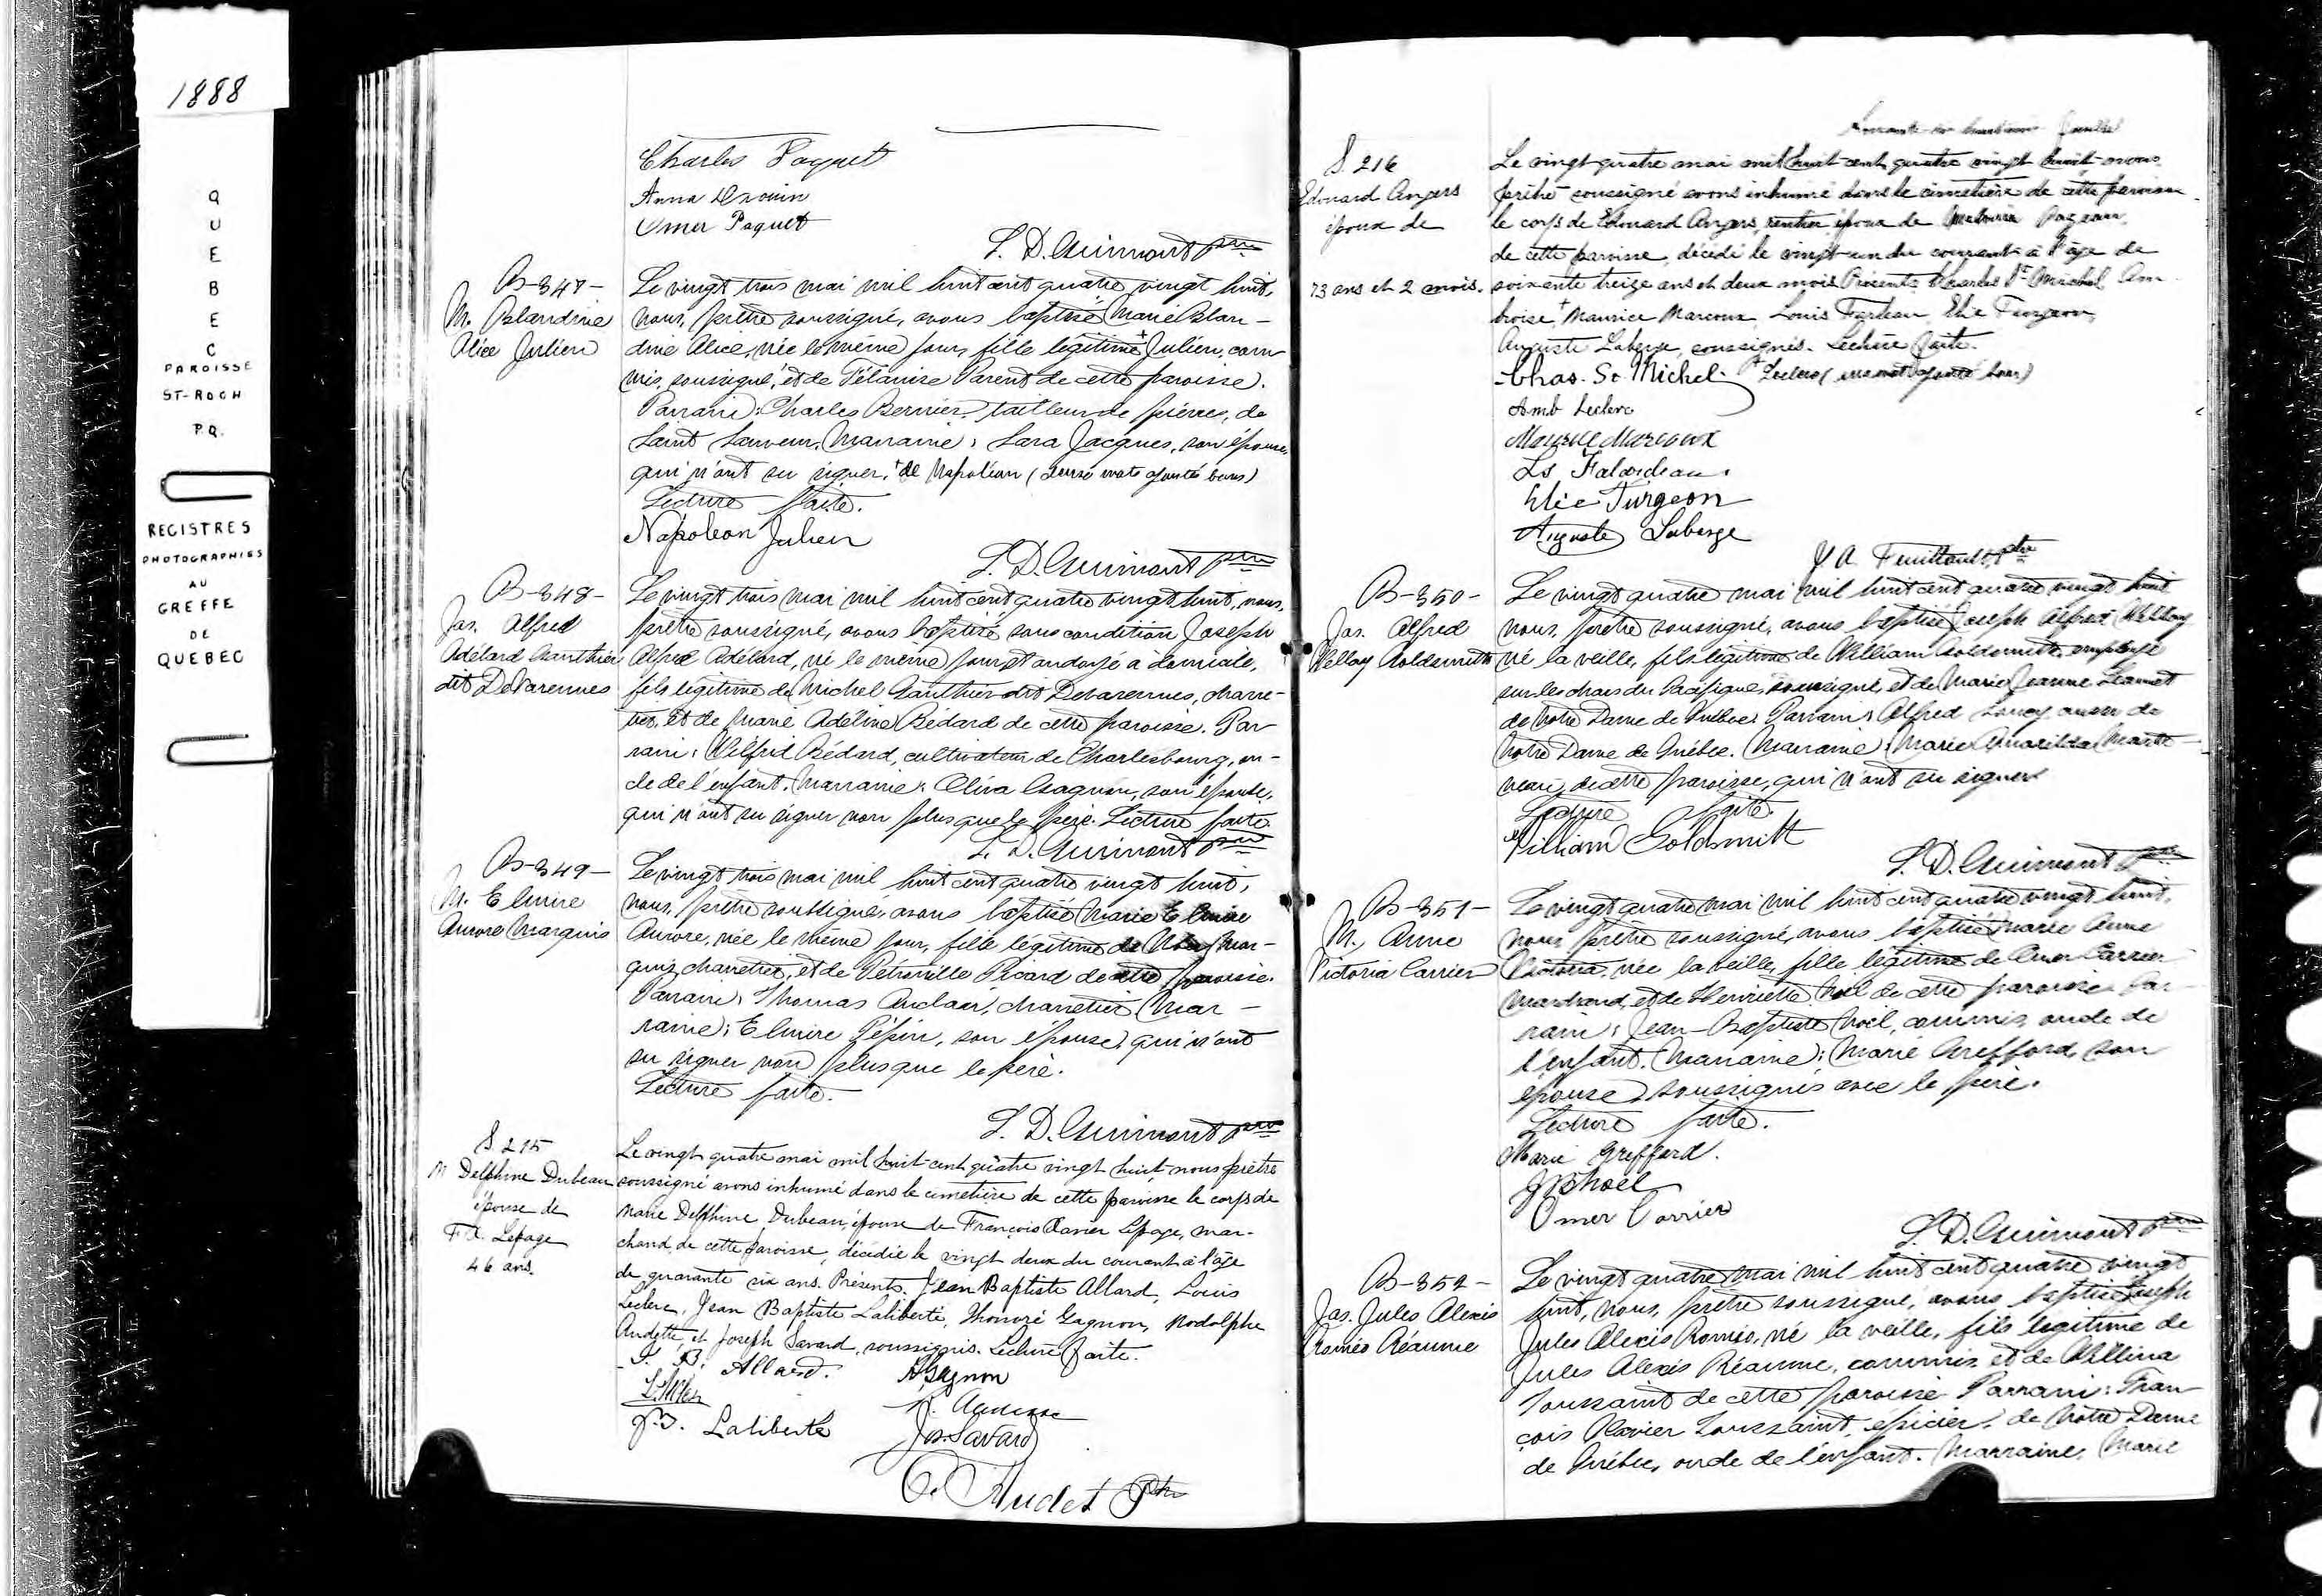 1888
QUEBEC
PAROISSE
ST-ROCH
P.Q.
REGISTRES
PHOTOGRAPHIES
AU
GREFFE
DE
QUEBEC
Charles Paquet
Anna Drouin
Omer Paquet
L. D. Guimont ptre
B-347-
M. Blandine
Alice Julien
Le vingt trois mai mil huit cent quatre vingt huit,
nous, prêtre soussigné, avons baptisé Marie Blan-
dine Alice, née le même jour, fille légitime + Julien, com
mis, soussigné, et de Parent de cette paroisse.
Parrain: Charles Bernier, tailleur de pierres, de
Saint Sauveur. Marraine: Sara Jacques, son épouse,
qui n'ont su signer. + de Napoléon ( mots ajoutés bons)
Lecture faite.
Napoleon Julien
L. D. Guimont ptre
B-348-
Jos. Alfred
Adélard Gauthier
dit DeVarennes
Le vingt trois mai mil huit cent quatre vingt huit, nous,
prêtre soussigné, avons baptisé sous condition Joseph
Alfred Adélard, né le même jour, et ondoyé à domicile,
fils légitime de Michel Gauthier dit Devarennes, charre-
tier, et de Marie Adéline Bédard de cette paroisse. Par
rain: Wilfrid Bédard, cultivateur de Charlesbourg, on-
cle de l'enfant. Marraine: Gagnon, son épouse,
qui n'ont su signer non plus que le père. Lecture faite.
L. D. Guimont ptre
B-349-
M. Elmire
Aurore Marquis
Le vingt trois mai mil huit cent quatre vingt huit,
nous, prêtre soussigné, avons baptisé Marie Elmire
Aurore, née le même jour, fille légitime de Mar-
quis, charretier, et de Pétronille Picard de cette paroisse.
Parrain: Thomas Auclair, charretier. Mar-
raine: Elmire Pépin, son épouse, qui n'ont
su signer non plus que le père.
Lecture faite.
L. D. Guimont ptre
S 215
M Delphine Dubeau
épouse de
F.X. Lepage
46 ans.
Le vingt quatre mai mil huit-cent quatre vingt huit nous prêtre
soussigné avons inhumé dans le cimetière de cette paroisse le corps de
Marie Delphine Dubeau, épouse de François Xavier Lepage, mar-
chand, de cette paroisse, décédée le vingt deux du courant à l'âge
de quarante six ans. Présents. Jean Baptiste Allard, Louis
Leclerc, Jean Baptiste Laliberté, Honoré Gagnon, Rodolphe
Audette et Joseph Savard, soussignés. Lecture faite.
J. B. Allard.
H Gagnon
J.B. Laliberté
Jos. Savard
Audet Ptre
S. 216
Edouard Angers
époux de
73 ans et 2 mois.
Le vingt-quatre mai mil huit-cent quatre vingt huit nous
prêtre soussigné avons inhumé dans le cimetière de cette paroisse
le corps de Edouard Angers, rentier, époux de
de cette paroisse, décédé le vingt-un du courant à l'âge de
soixante treize ans et deux mois. Présents Charles St-Michel Am
broise + Maurice Marcoux, Louis Elie Turgeon,
Auguste Laberge, soussignés. Lecture faite.
Chas. St Michel
+ Leclerc (un mot ajouté bon)
Amb Leclerc
Maurice Marcoux
Ls Falardeau
Elie Turgeon
Auguste Laberge
Feuiltault, Ptre
B-350-
Jos. Alfred
Wellay Goldsmith
Le vingt quatre mai mil huit cent quatre vingt huit
nous, prêtre soussigné, avons baptisé Joseph Alfred Wellay
né la veille, fils légitime de William Goldsmith, employé
sur les chars du Pacifique, soussigné, et de Marie Jeanne
de Notre Dame de Québec. Parrain: Alfred aussi de
Notre Dame de Québec. Marraine: Marie
neau, de cette paroisse, qui n'ont su signer.
Lecture faite.
William Goldsmith
L. D. Guimont ptre
B-351-
M. Anne
Victoria Carrier
Le vingt quatre mai mil huit cent quatre vingt huit,
nous, prêtre soussigné, avons baptisé Marie Anne
Victoria, née la veille, fille légitime de Omer Carrier
marchand, et de Henriette Noël de cette paroisse. Par-
rain: Jean-Baptiste Noël, commis, oncle de
l'enfant. Marraine: Marie Greffard, son
épouse, soussignés avec le père.
Lecture faite.
Marie Greffard.
JBNoël
Omer Carrier
L. D. Guimont ptre
B-352-
Jos. Jules Alexis
Roméo Réaume
Le vingt quatre mai mil huit cent quatre vingt
huit, nous, prêtre soussigné, avons baptisé Joseph
Jules Alexis Roméo, né la veille, fils légitime de
Jules Alexis Réaume, commis, et de
Toussaint de cette paroisse. Parrain: Fran
çois Xavier Toussaint, épicier, de Notre Dame
de Québec, oncle de l'enfant. Marraine, Marie